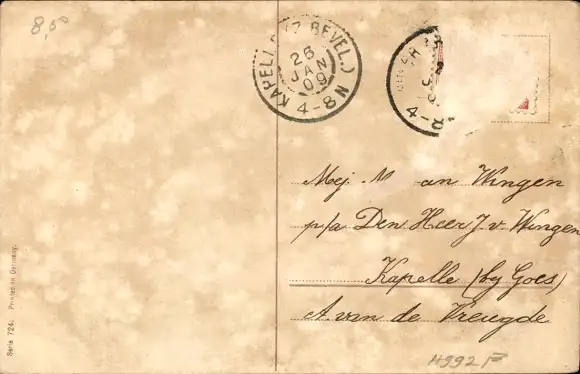 8,50
KAPELLE (Z. BEVEL.)
26
JAN
09
4-8N
4-8
Mej. M an Wingen
p/a Den Heer J. v. Wingen
Kapelle (by Goes)
A van de Vreugde
Serie 724. Printed in Germany.
4992 F